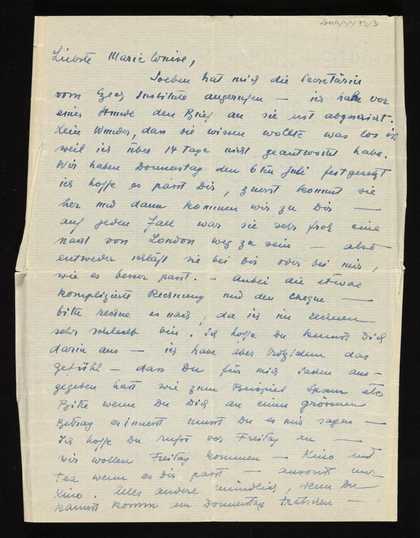 Liebste Marie Louise,
Soeben hat mich die Secretärin
vom Czech Institute angerufen — ich habe vor
einer Stunde den Brief an sie erst abgeschickt.
Kein Wunder, dass sie wissen wollte was los ist
weil ich über 14 Tage nicht geantwortet habe.
Wir haben Donnerstag den 6ten Juli festgesetzt
ich hoffe es passt Dir, zuerst kommt sie
her und dann kommen wir zu Dir —
auf jeden Fall war sie sehr froh eine
nacht von London weg zu sein — also
entweder schläft sie bei Dir oder bei mir,
wie es besser passt. — Anbei die etwas
komplizierte Rechnung und den Cheque —
bitte rechne es nach, da ich im rechnen
sehr schlecht bin. Ich hoffe Du kennst Dich
darin aus — ich habe aber trotzdem das
Gefühl — dass Du für mich Sachen aus-
gegeben hast wie zum Beispiel Spam etc
Bitte wenn Du Dich an einen grösseren
Betrag erinnerst musst Du es mir sagen —
Ich hoffe Du rufst vor Freitag an —
wir wollen Freitag kommen — Kino und
Tea wenn es Dir passt — sonst nur
Kino. Alles andere mündlich, wenn Du
kannst komm am Donnerstag